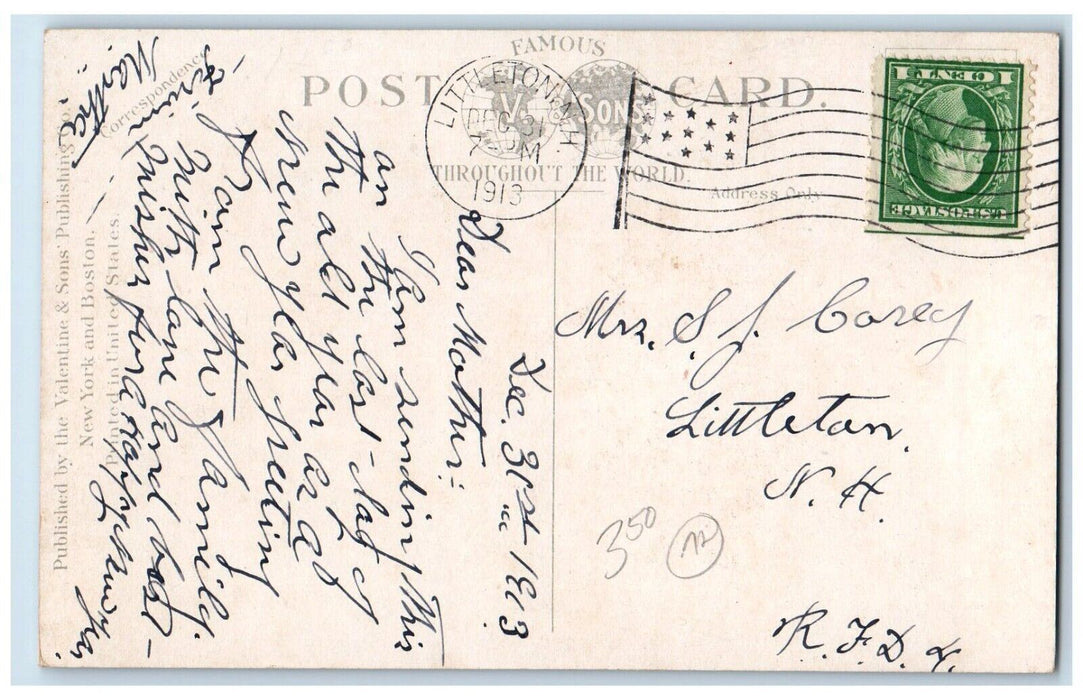 FAMOUS
POST CARD.
V. & SONS
THROUGHOUT THE WORLD.
Address Only
Correspondence
Published by the Valentine & Sons' Publishing Co.
New York and Boston.
Printed in United States.
LITTLETON, N.H.
DEC 31
PM
1913
1 CENT 1
U.S. POSTAGE
Dec. 31st 1913
Dear Mother:
I am sending this
on the last day of
the old year as a
new year greeting
from the family.
With love and best
wishes for a happy new year
Martha
Mrs. S. J. Corey
Littleton,
N. H.
R. F. D. 4.
3.50